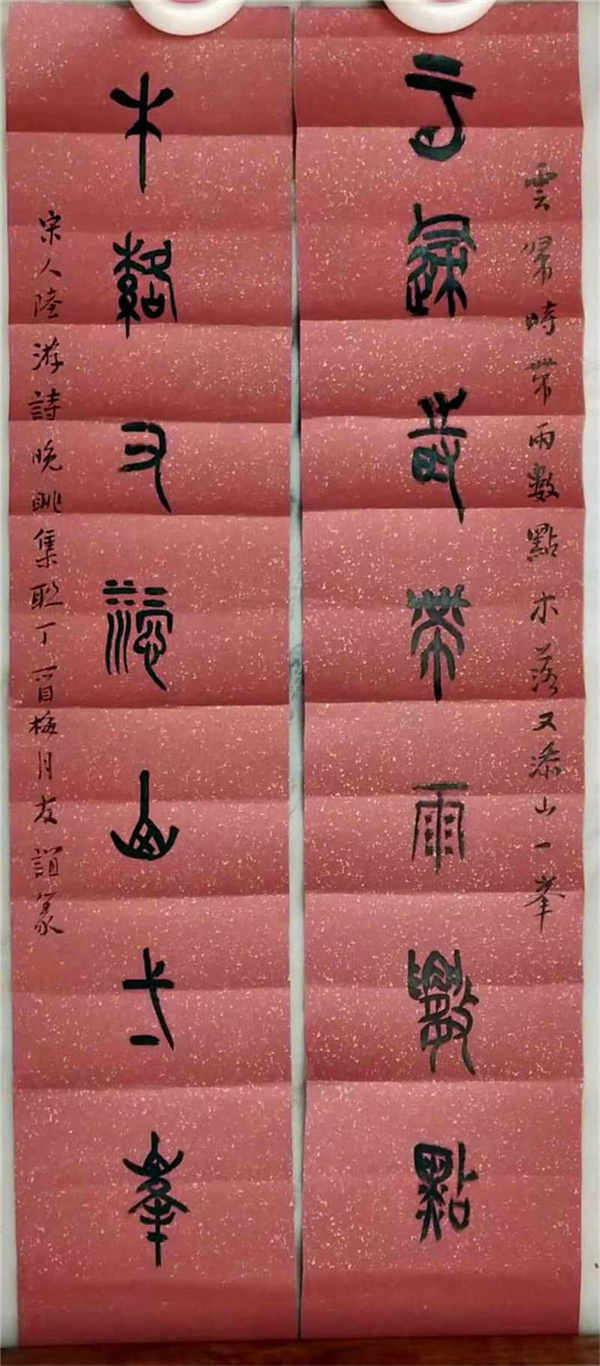 雲歸時帶雨數點木落又添山一峯
雲歸時帶雨數點
木落又添山一峯
宋人陸游詩晚眺集聯丁酉梅月友誼篆